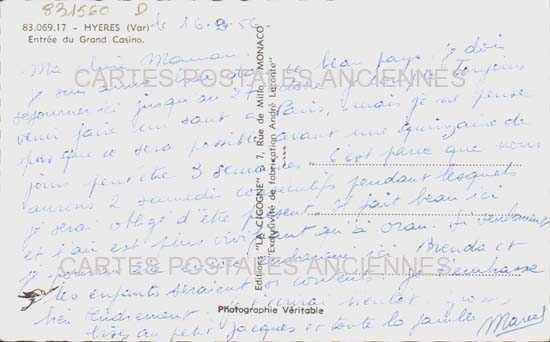 831560 D
83.069.17 - HYERES (Var)
Entrée du Grand Casino.
le 16-3-56
Ma chère Maman
Je suis ce beau pays. Je dois
séjourner ici jusqu'au toujours
venir faire un saut à Paris, mais je ne pense
pas que ce sera possible avant une quinzaine de
jours peut être 3 semaines. C'est parce que nous
aurons 2 samedi consécutifs pendant lesquels
je serai obligé d'être présent. Il fait beau ici
et l'air est plus qu'à oran. Si seulement
je ici Brenda et
les enfants seraient Je t'embrasse
bien tendrement. bientôt grosses
bises au petit Jacques et toute la famille
Marcel
Editions "LA CIGOGNE" - 7, Rue de Millo, MONACO
"Exclusivité de fabrication André Leconte"
Photographie Véritable
CARTES POSTALES ANCIENNES
CARTES POSTALES ANCIENNES